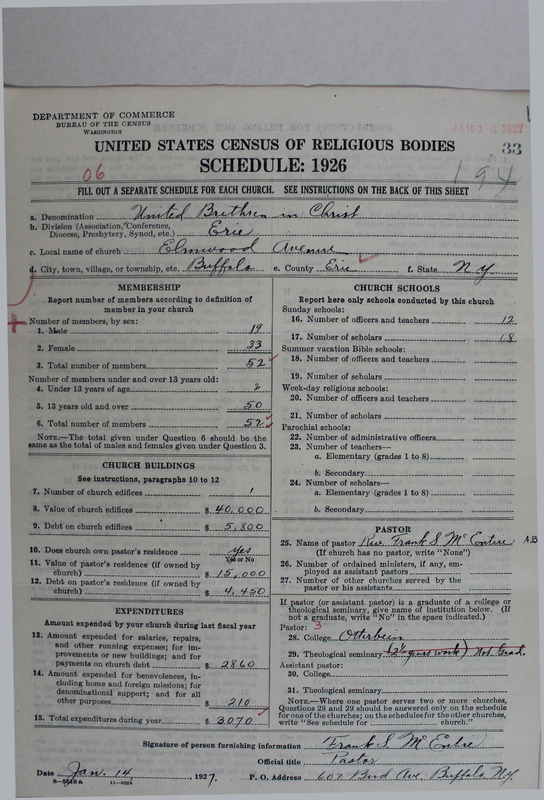 DEPARTMENT OF COMMERCE
BUREAU OF THE CENSUS
WASHINGTON
UNITED STATES CENSUS OF RELIGIOUS BODIES
33
SCHEDULE: 1926
06
194
FILL OUT A SEPARATE SCHEDULE FOR EACH CHURCH. SEE INSTRUCTIONS ON THE BACK OF THIS SHEET
a. Denomination United Brethren in Christ
b. Division (Association, Conference, Diocese, Presbytery, Synod, etc.) Erie
c. Local name of church Elmwood Avenue
d. City, town, village, or township, etc. Buffalo e. County Erie f. State N.Y.
MEMBERSHIP
Report number of members according to definition of
member in your church
Number of members, by sex:
1. Male 19
2. Female 33
3. Total number of members 52
Number of members under and over 13 years old:
4. Under 13 years of age 2
5. 13 years old and over 50
6. Total number of members 52
NOTE.—The total given under Question 6 should be the
same as the total of males and females given under Question 3.
CHURCH BUILDINGS
See instructions, paragraphs 10 to 12
7. Number of church edifices 1
8. Value of church edifices $ 40,000
9. Debt on church edifices $ 5,800
10. Does church own pastor's residence yes
Yes or No
11. Value of pastor's residence (if owned by
church) $ 15,000
12. Debt on pastor's residence (if owned by
church) $ 4,450
EXPENDITURES
Amount expended by your church during last fiscal year
13. Amount expended for salaries, repairs,
and other running expense; for im-
provements or new buildings; and for
payments on church debt $ 2860
14. Amount expended for benevolences, in-
cluding home and foreign missions; for
denominational support; and for all
other purposes $ 210
15. Total expenditures during year $ 3070
CHURCH SCHOOLS
Report here only schools conducted by this church
Sunday schools:
16. Number of officers and teachers 12
17. Number of scholars
Summer vacation Bible schools:
18. Number of officers and teachers
19. Number of scholars
Week-day religious schools:
20. Number of officers and teachers
21. Number of scholars
Parochial schools:
22. Number of administrative officers
23. Number of teachers—
a. Elementary (grades 1 to 8)
b. Secondary
24. Number of scholars—
a. Elementary (grades 1 to 8)
b. Secondary
PASTOR
25. Name of pastor Rev. Frank S. McEntire AB
(If church has no pastor, write "None")
26. Number of ordained ministers, if any, em-
ployed as assistant pastors
27. Number of other churches served by the
pastor or his assistants
If pastor (or assistant pastor) is a graduate of a college or
theological seminary, give name of institution below. (If
not a graduate, write "No" in the space indicated.)
Pastor: 3
28. College Otterbein
29. Theological seminary (2½ years work) Not Grad.
Assistant pastor:
30. College
31. Theological seminary
NOTE.—Where one pastor serves two or more churches,
Questions 28 and 29 should be answered only on the schedule
for one of the churches; on the schedules for the other churches,
write "See schedule for church."
Signature of person furnishing information Frank S. McEntire
Official title Pastor
Date Jan. 14 1927. P. O. Address 602 Bird Ave. Buffalo N.Y.